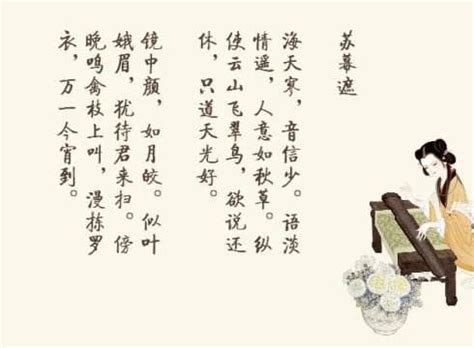 苏幕遮
海天寒，音信少。语淡
情遥，人意如秋草。纵
使云山飞翠鸟，欲说还
休，只道天光好。
镜中颜，如月皎。似叶
娥眉，犹待君来扫。傍
晚鸣禽枝上叫，漫拣罗
衣，万一今宵到。